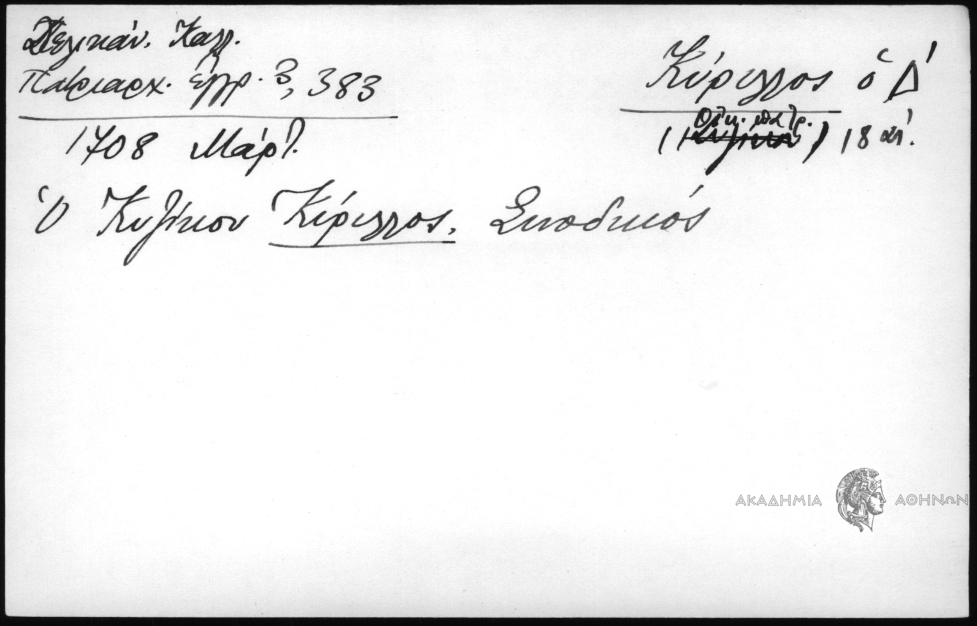 Δελικάν. Καλλ.
Πατριαρχ. έγγρ. 3, 383
Κύριλλος ὁ Δ'
Οἰκ. πατρ.
( ) 18 αἰ.
1708 Μάρτ.
Ὁ Κυζίκου Κύριλλος. Συνοδικός
ΑΚΑΔΗΜΙΑ ΑΘΗΝΩΝ